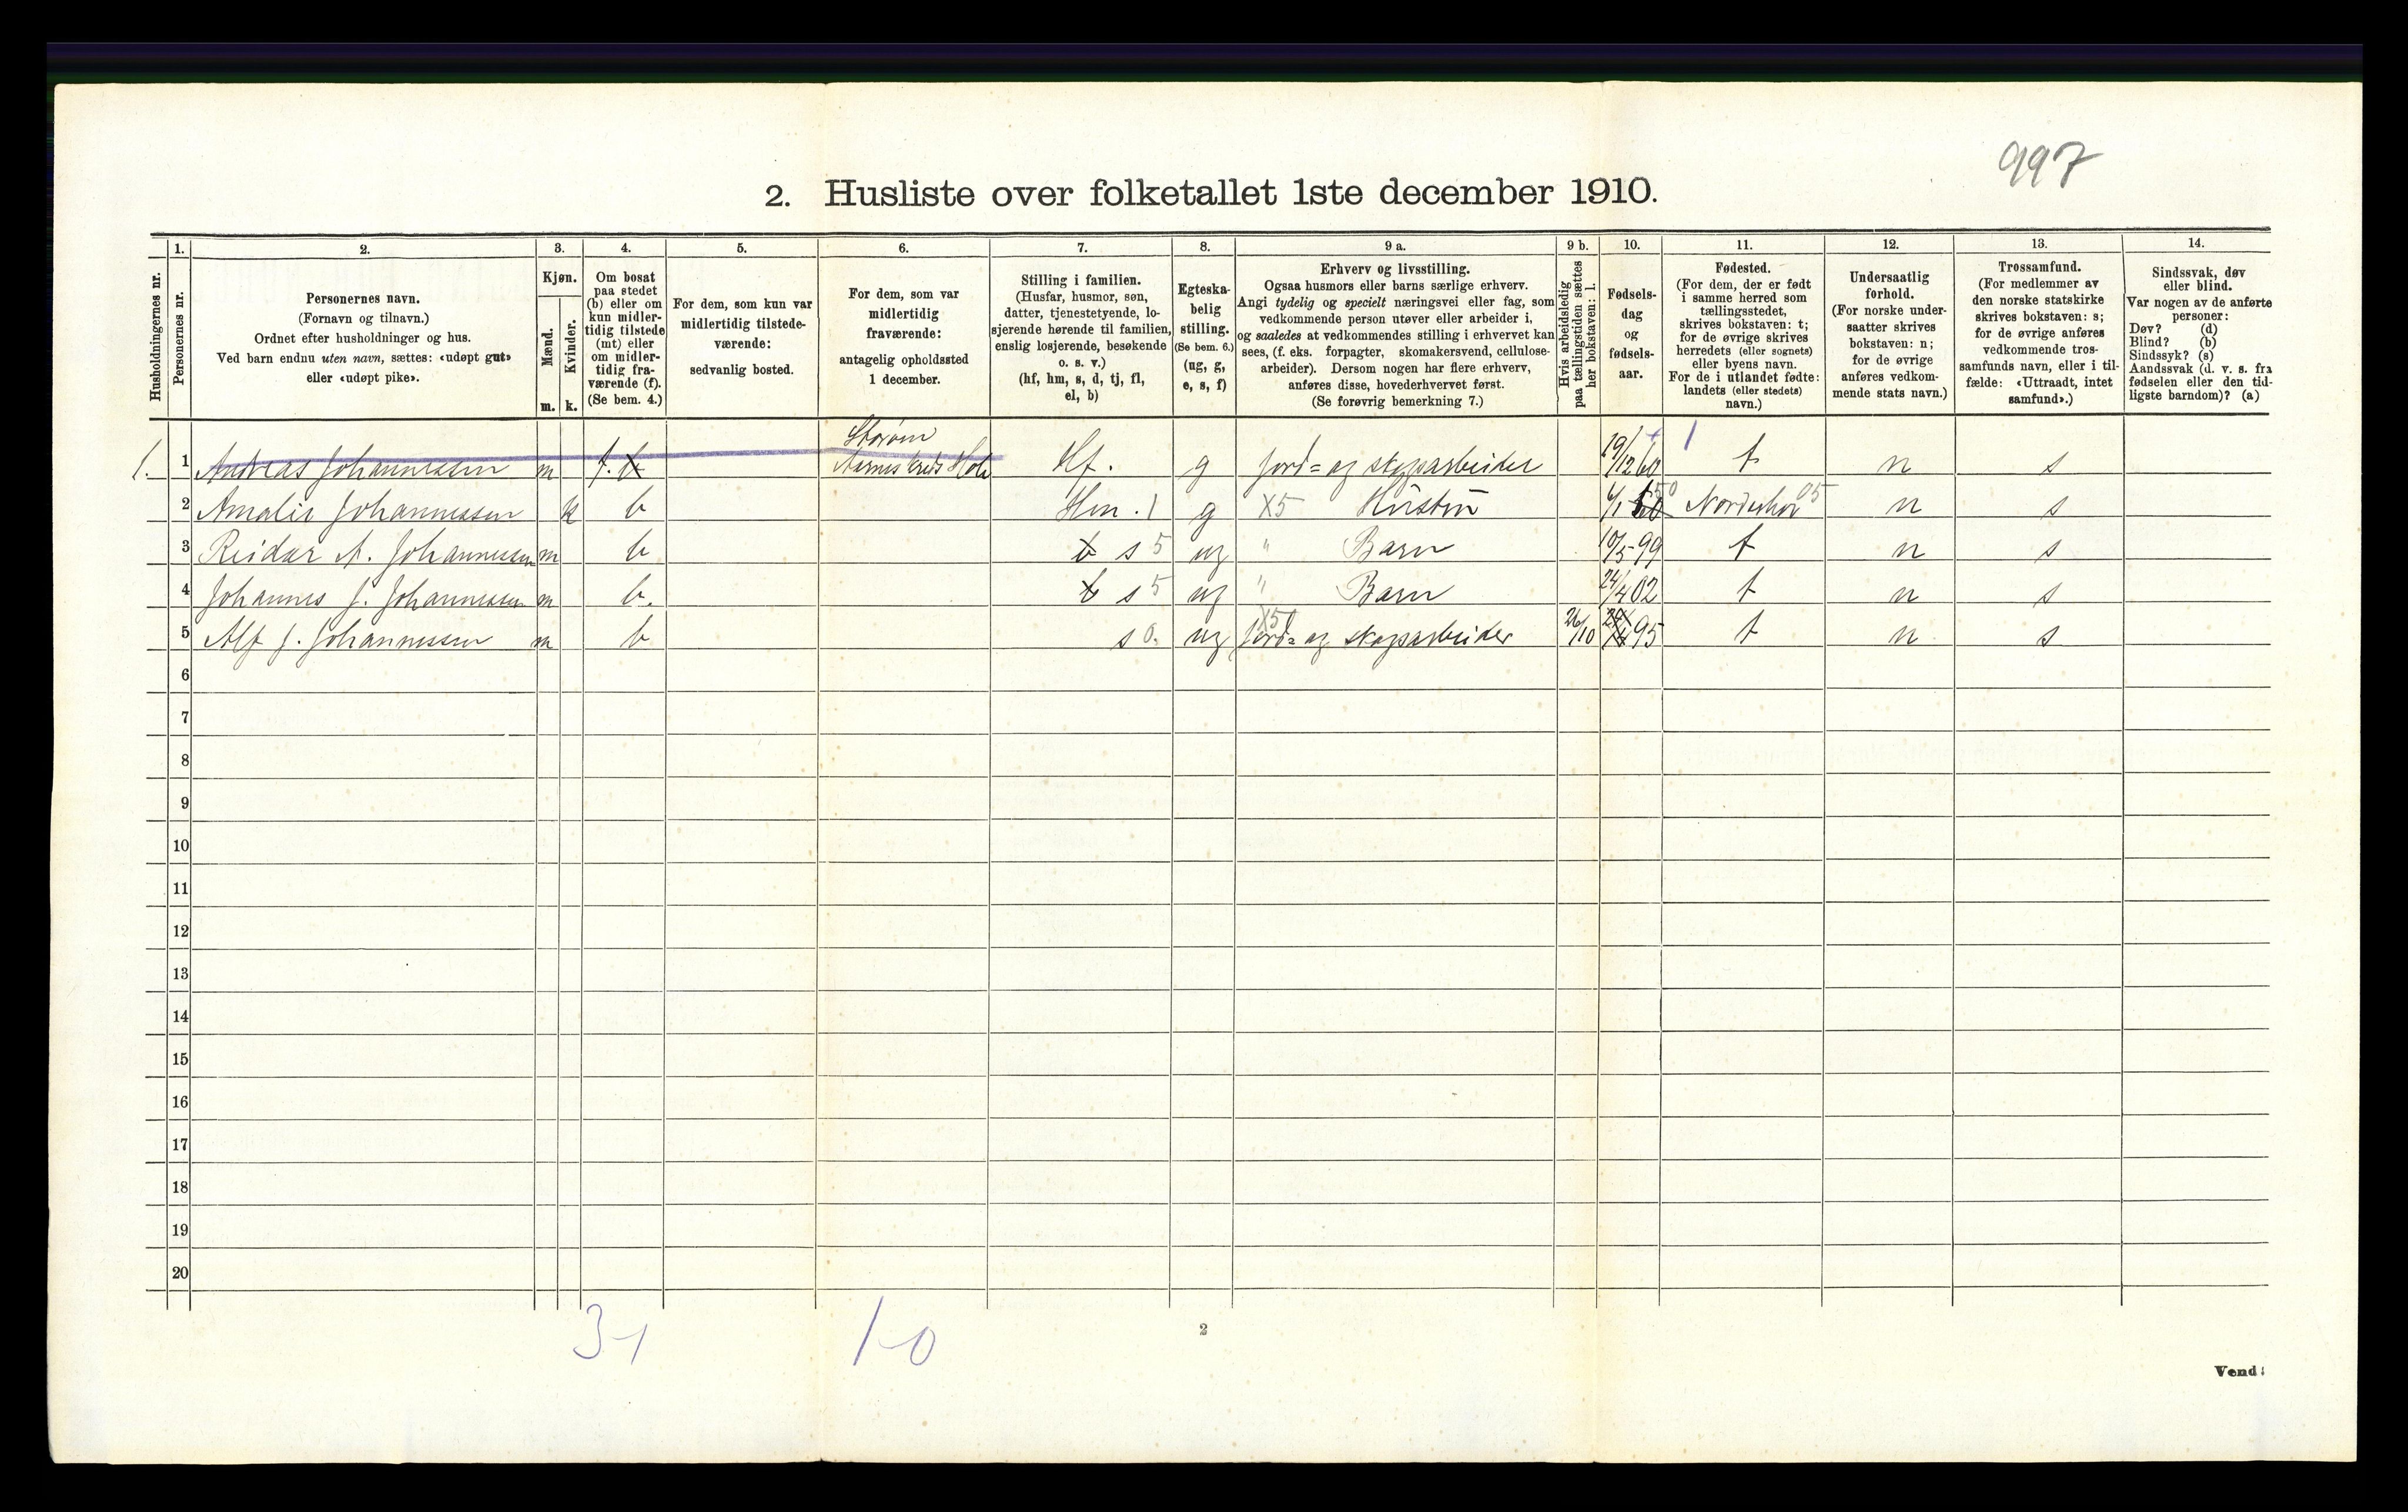 997
2. Husliste over folketallet 1ste december 1910.
Husholdningernes nr.
1.
Personernes nr.
2.
Personernes navn.
(Fornavn og tilnavn.)
Ordnet efter husholdninger og hus.
Ved barn endnu uten navn, sættes: «udøpt gut»
eller «udøpt pike».
3.
Kjøn.
Mænd.
Kvinder.
m. k.
4.
Om bosat
paa stedet
(b) eller om
kun midler-
tidig tilstede
(mt) eller
om midler-
tidig fra-
værende (f).
(Se bem. 4.)
5.
For dem, som kun var
midlertidig tilstede-
værende:
sedvanlig bosted.
6.
For dem, som var
midlertidig
fraværende:
antagelig opholdssted
1 december.
7.
Stilling i familien.
(Husfar, husmor, søn,
datter, tjenestetyende, lo-
sjerende hørende til familien,
enslig losjerende, besøkende
o. s. v.)
(hf, hm, s, d, tj, fl,
el, b)
8.
Egteska-
belig
stilling.
(Se bem. 6.)
(ug, g,
e, s, f)
9 a.
Erhverv og livsstilling.
Ogsaa husmors eller barns særlige erhverv.
Angi tydelig og specielt næringsvei eller fag, som
vedkommende person utøver eller arbeider i,
og saaledes at vedkommendes stilling i erhvervet kan
sees, (f. eks. forpagter, skomakersvend, cellulose-
arbeider). Dersom nogen har flere erhverv,
anføres disse, hovederhvervet først.
(Se forøvrig bemerkning 7.)
9 b.
Hvis arbeidsledig
paa tællingstiden sættes
her bokstaven: l.
10.
Fødsels-
dag
og
fødsels-
aar.
11.
Fødested.
(For dem, der er født
i samme herred som
tællingsstedet,
skrives bokstaven: t;
for de øvrige skrives
herredets (eller sognets)
eller byens navn.
For de i utlandet fødte:
landets (eller stedets)
navn.)
12.
Undersaatlig
forhold.
(For norske under-
saatter skrives
bokstaven: n;
for de øvrige
anføres vedkom-
mende stats navn.)
13.
Trossamfund.
(For medlemmer av
den norske statskirke
skrives bokstaven: s;
for de øvrige anføres
vedkommende tros-
samfunds navn, eller i til-
fælde: «Uttraadt, intet
samfund».)
14.
Sindssvak, døv
eller blind.
Var nogen av de anførte
personer:
Døv? (d)
Blind? (b)
Sindssyk? (s)
Aandssvak (d. v. s. fra
fødselen eller den tid-
ligste barndom)? (a)
1. 1 Andreas Johannessen m f. b Hole Hf. g Jord= og skogsarbeider 19/12 60 t n s
2 Amalie Johannessen k b Hm. 1 g X5 Hustru 6/1 Norderhov 05 n s
3 Reidar A. Johannessen m b b s 5 ug " Barn 10/5-99 t n s
4 Johannes J. Johannessen m b. b s 5 ug " Barn 24/4 02 t n s
5 Alf J. Johannessen m b s 0. ug X50 Jord= og skogsarbeider 26/10 95 t n s
6
7
8
9
10
11
12
13
14
15
16
17
18
19
20
3-1 1-0
2
Vend!